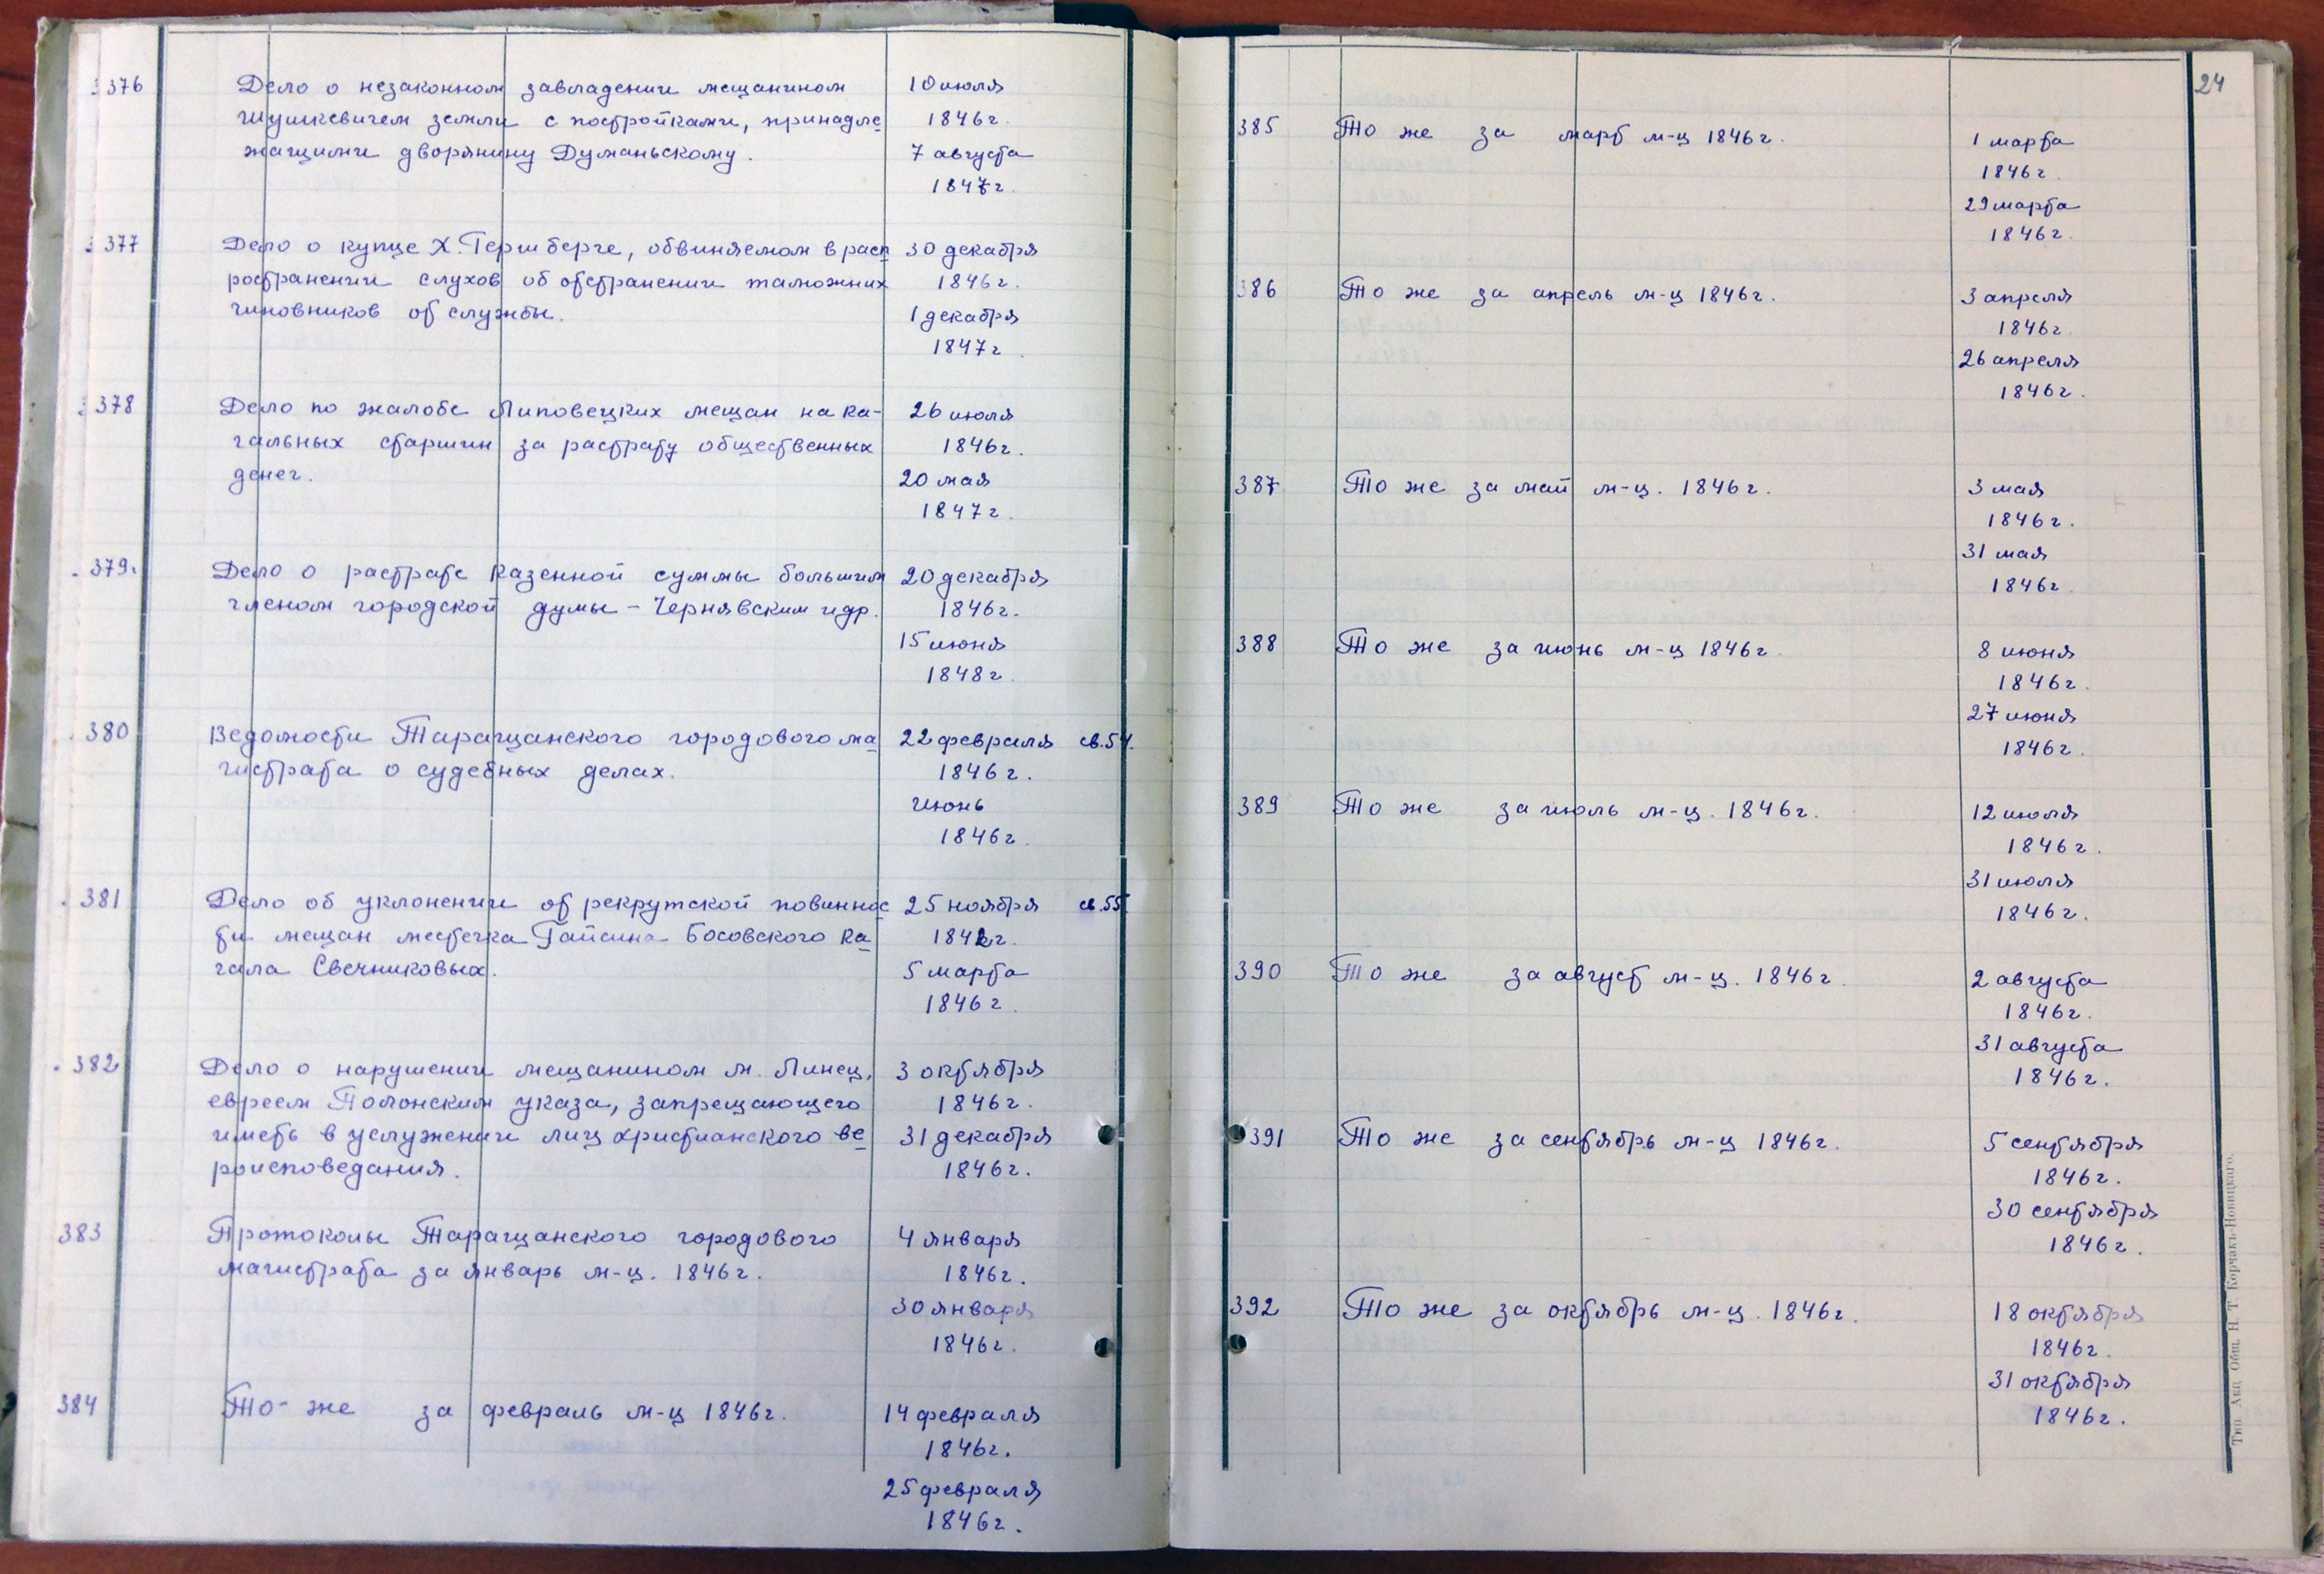 376 Дело о незаконном завладении мещанином 10 июля
Шушкевичем земли с постройками, принадле- 1846г.
жащими дворянину Думаньскому. 7 августа
1847г.
377 Дело о купце Х. Гершберге, обвиняемом в расп 30 декабря
ространении слухов об отстранении таможних 1846г.
чиновников от службы. 1 декабря
1847г.
378 Дело по жалобе Липовецких мещан на ка- 26 июля
гальных старшин за растрату общественных 1846г.
денег. 20 мая
1847г.
379. Дело о растрате казенной суммы большим 20 декабря
членом городской думы - Чернявским и др. 1846г.
15 июня
1848г.
380 Ведомости Таращанского городового ма 22 февраля св. 54.
гистрата о судебных делах. 1846г.
июнь
1846г.
381 Дело об уклонении от рекрутской повиннос 25 ноября св. 55.
ти мещан местечка Гайсина Босовского ка 1842г.
гала Свечниковых. 5 марта
1846г.
382 Дело о нарушении мещанином м. Линец, 3 октября
евреем Полонским указа, запрещающего 1846г.
иметь в услужении лиц христианского ве 31 декабря
роисповедания. 1846г.
383 Протоколы Таращанского городового 4 января
магистрата за январь м-ц. 1846г. 1846г.
30 января
1846г.
384 То же за февраль м-ц 1846г. 14 февраля
1846г.
25 февраля
1846г.
24
385 То же за март м-ц 1846г. 1 марта
1846г.
29 марта
1846г.
386 То же за апрель м-ц 1846г. 3 апреля
1846г.
26 апреля
1846г.
387 То же за май м-ц. 1846г. 3 мая
1846г.
31 мая
1846г.
388 То же за июнь м-ц 1846г. 8 июня
1846г.
27 июня
1846г.
389 То же за июль м-ц. 1846г. 12 июля
1846г.
31 июля
1846г.
390 То же за август м-ц. 1846г. 2 августа
1846г.
31 августа
1846г.
391 То же за сентябрь м-ц 1846г. 5 сентября
1846г.
30 сентября
1846г.
392 То же за октябрь м-ц. 1846г. 18 октября
1846г.
31 октября
1846г.
Тип. Акц. Общ. Н. Т. Корчакъ-Новицкаго.